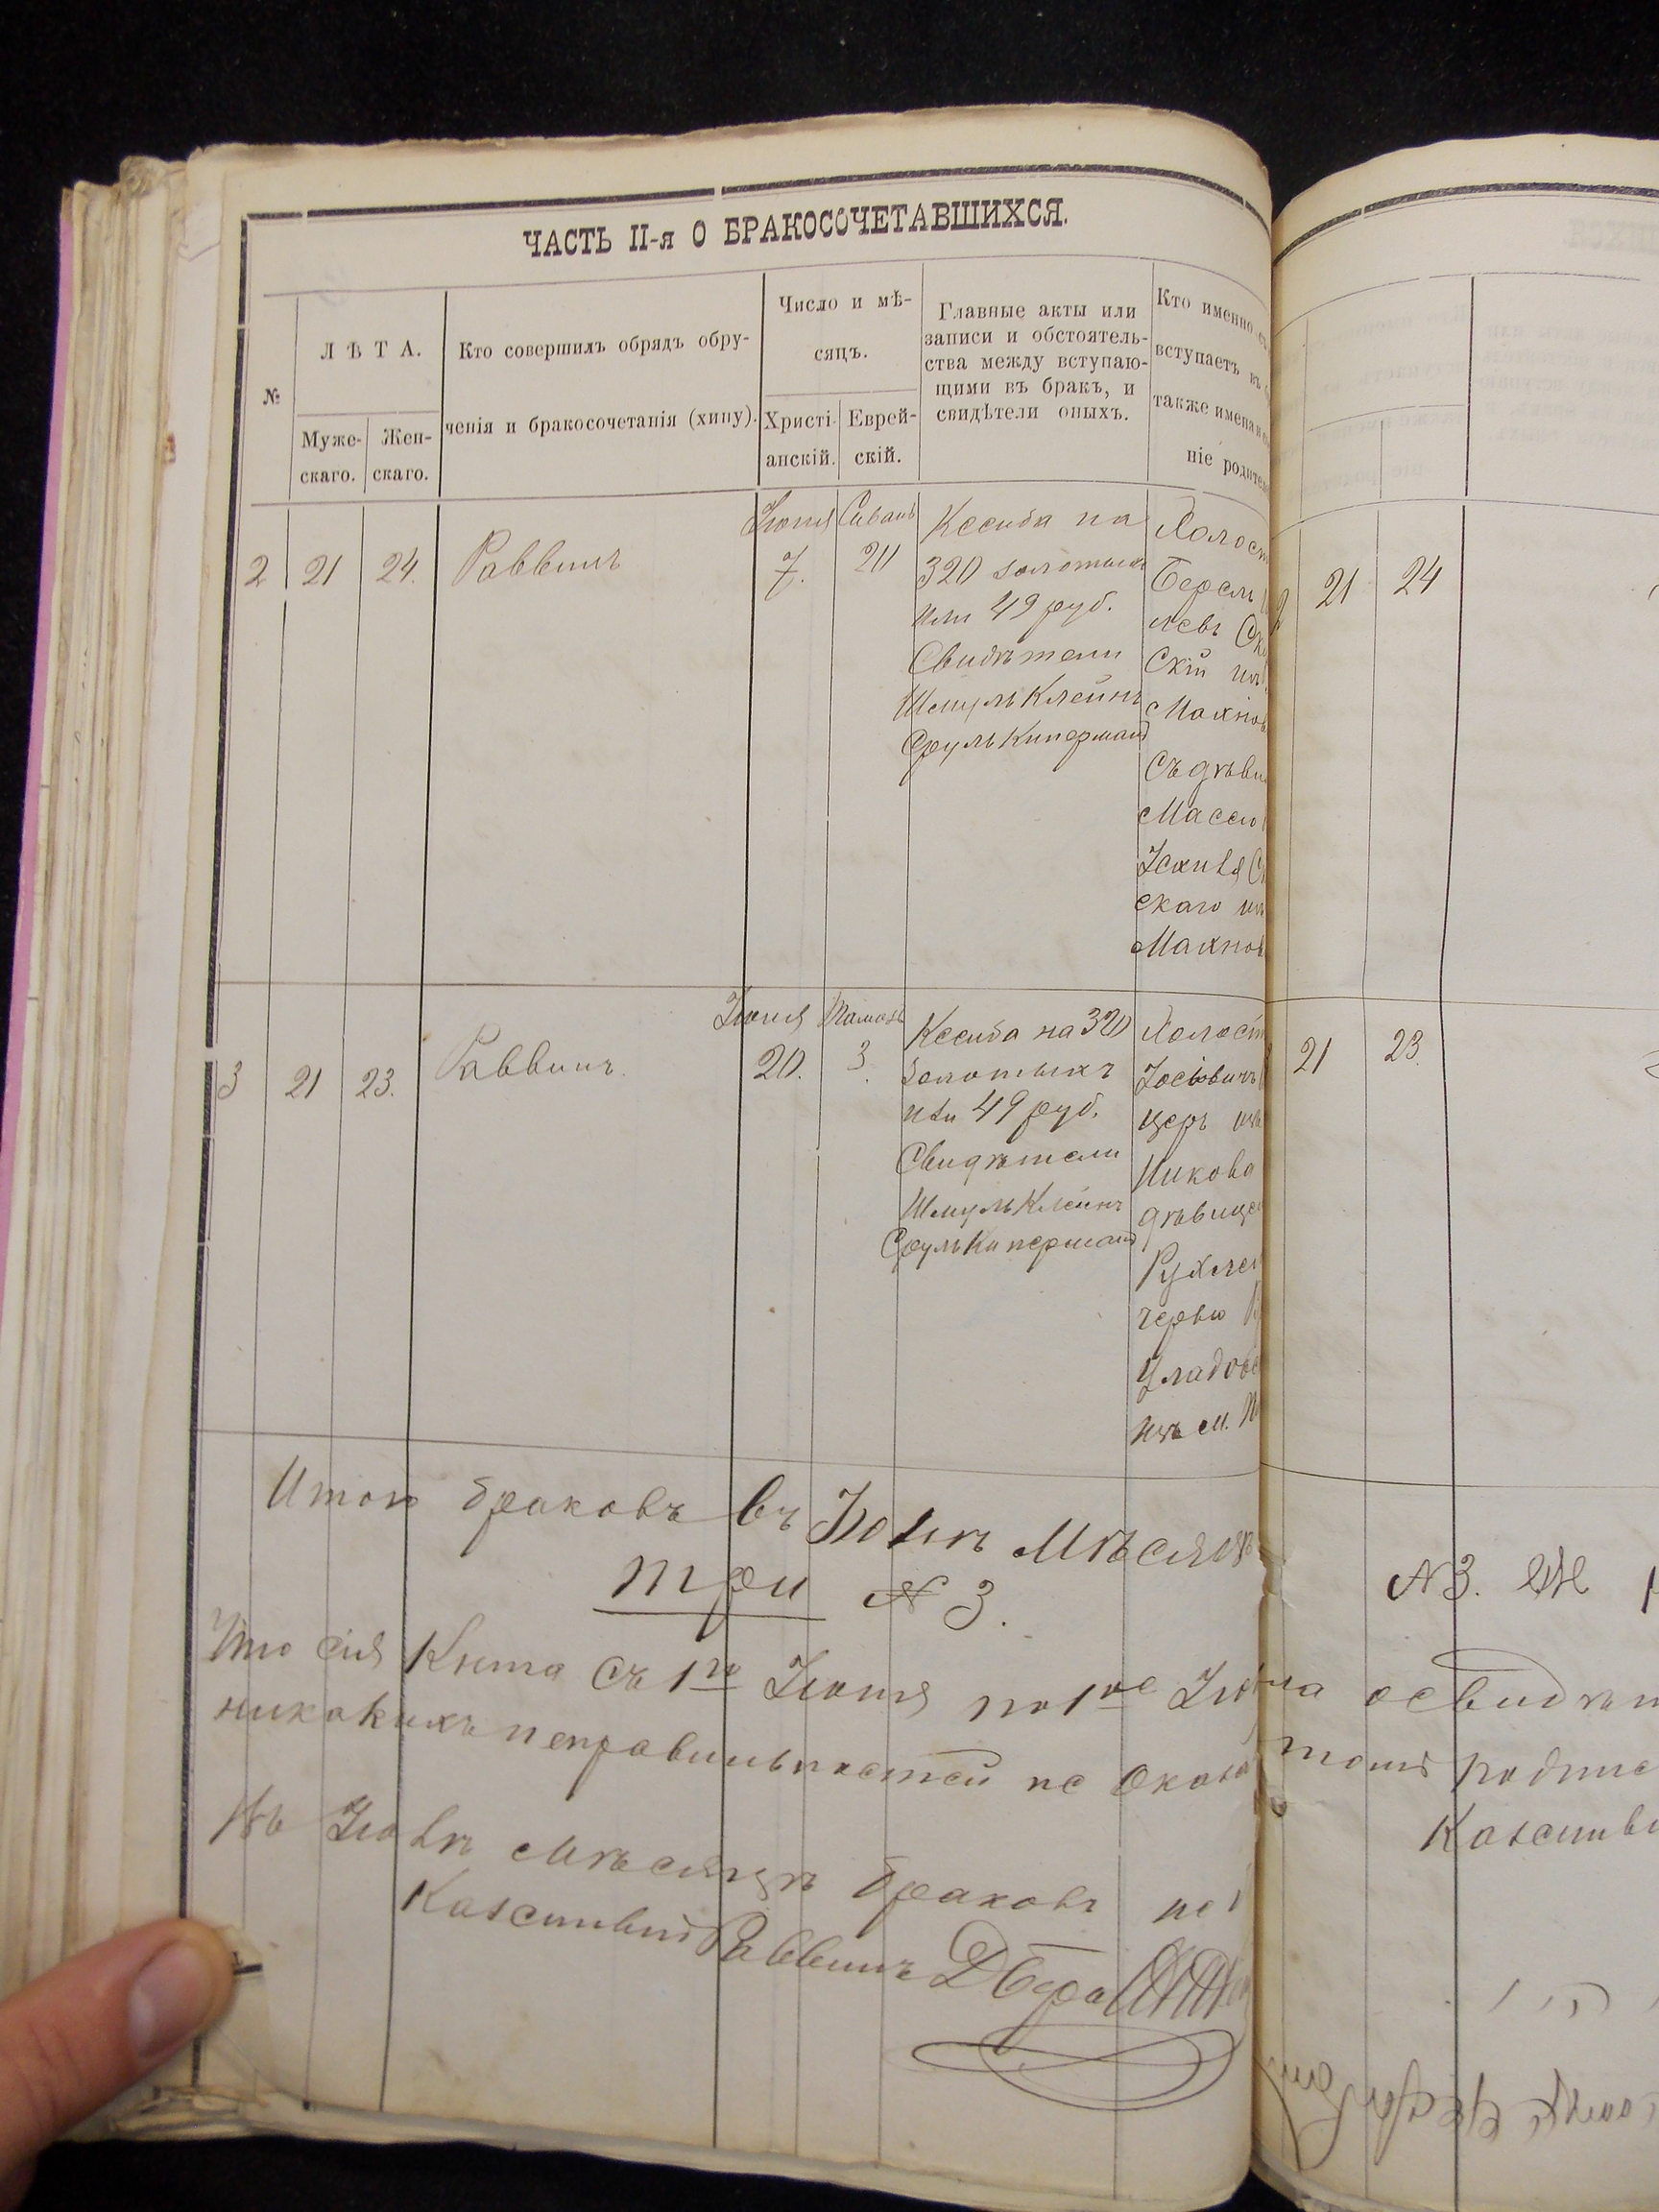 ЧАСТЬ II-я О БРАКОСОЧЕТАВШИХСЯ.
№
ЛѢТА.
Муже-
скаго.
Жен-
скаго.
Кто совершилъ обрядъ обру-
ченія и бракосочетанія (хипу).
Число и мѣ-
сяцъ.
Христі-
анскій.
Еврей-
скій.
Главные акты или
записи и обстоятель-
ства между вступаю-
щими въ бракъ, и
свидѣтели оныхъ.
Кто именно съ
вступаетъ въ
также имена и
ніе родител
2
21
24.
Раввинъ
Іюня
7.
Сиванъ
20
Ксенба на
320 золотыхъ
или 49 руб.
Свидѣтели
Шмуль Клейнъ
Сруль Киперманъ
Холост
Берель
левъ Ск
скій изъ
Махнов
съ дѣви
Массею
скаго изъ
Махнов
3
21
23.
Раввинъ.
Іюня
20.
Тамозъ
3.
Ксенба на 320
золотыхъ
или 49 руб.
Свидѣтели
Шмуль Клейнъ
Сруль Киперманъ
Холост
Іосіовичъ
церъ изъ
Никова
дѣвицею
Рухлею
черью
Уладовс
изъ м.
Итого браковъ въ Іюнѣ Мѣсяцѣ
три № 3.
Что сія Книга съ 1го Іюня по 1ое Іюл
никакихъ неправильностей не оказа
Въ Іюлѣ Мѣсяцѣ браковъ не
Казенный Раввинъ
21
24
21
23.
№ 3.
ла освидѣт
подпис
Казенны